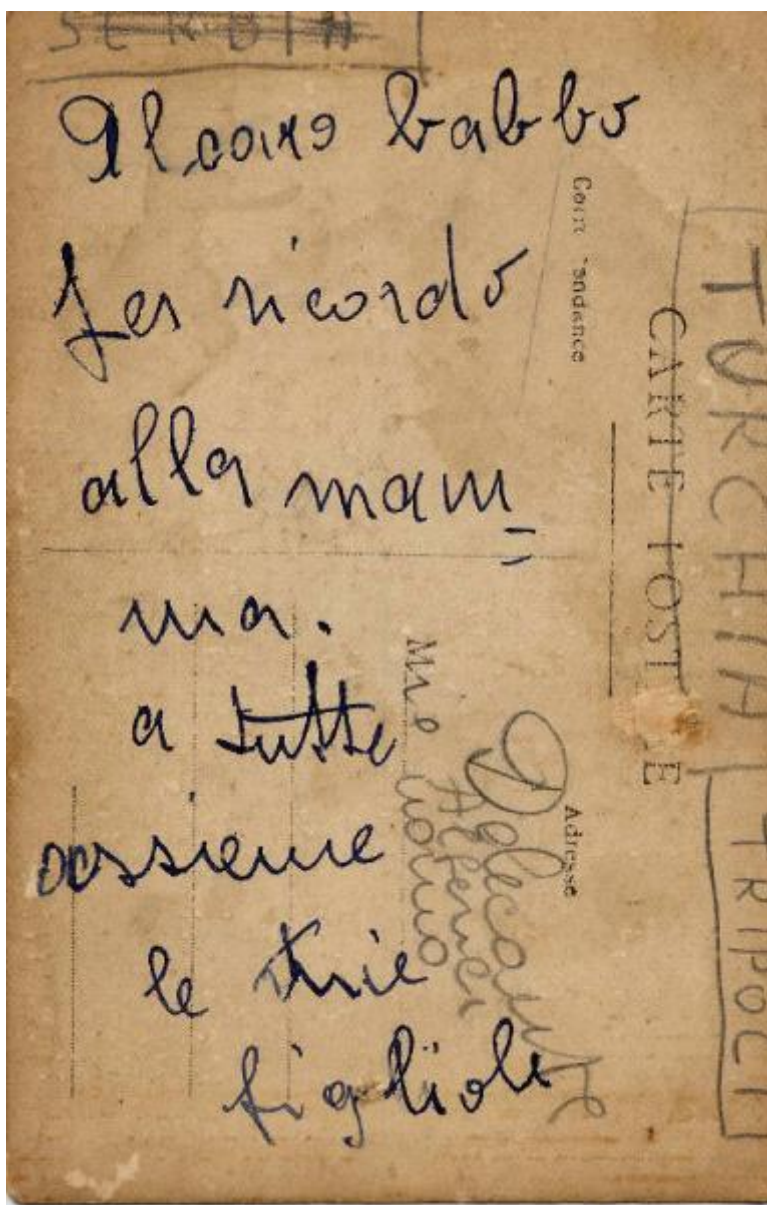 SERBIA
Al caro babbo
per ricordo
alla mam=
ma.
a tutte
assieme
le mie
figliole
Corr ndance
CARTE POSTALE
Adresse
TURCHIA
TRIPOLI
Mio
nonno